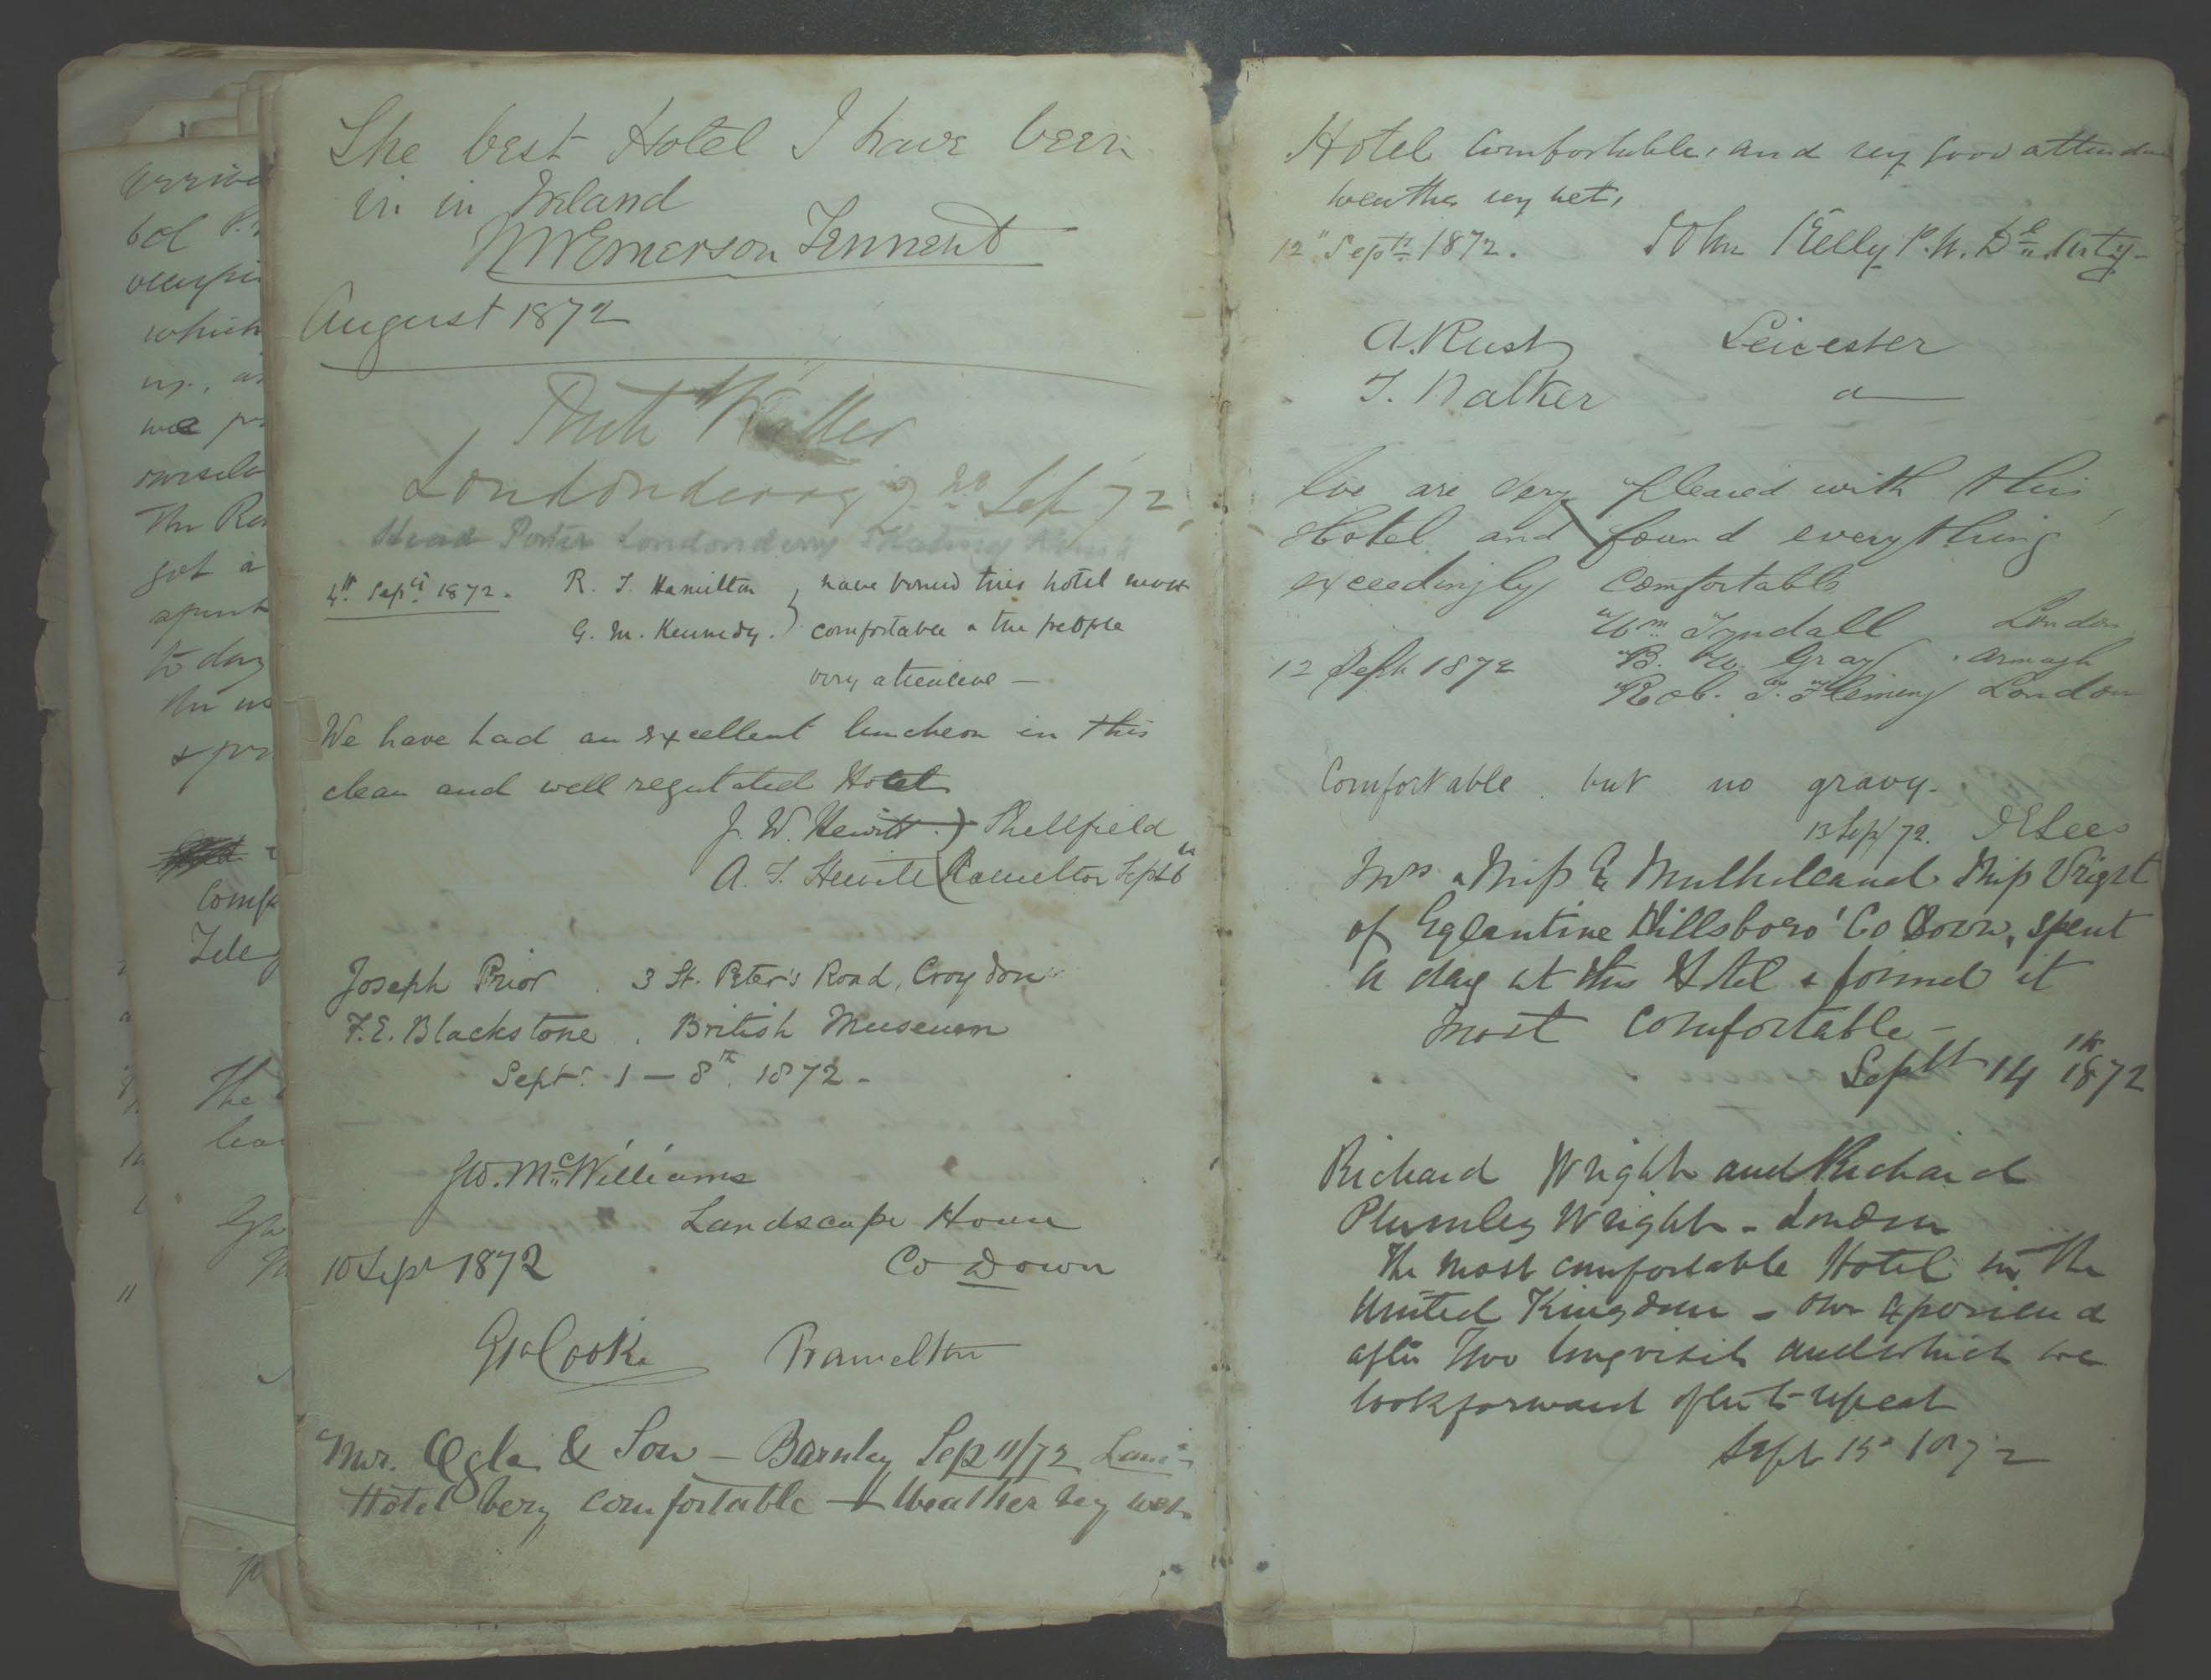 The best Hotel I have been
in in Ireland
Emerson Tennent
August 1872
Londonderry 2nd Sep 72
Head Porter Londonderry Skating
4th Sept 1872. R. T. Hamilton
G. M. Kennedy. } have found this hotel most
comfortable & the people
very attentive —
We have had an excellent luncheon in this
clean and well regulated Hotel
J. W. Hewitt } Shellfield
A. T. Hewitt { Ramelton Sept 6th
Joseph Prior. 3 St. Peter's Road, Croydon
F. E. Blackstone, British Museum
Septr 1 — 8th 1872 -
McWilliams
Landscape House
10 Sept 1872 Co Down
Cooke Ramelton
Mr. Ogle & Son — Barnley Sep 11/72
Hotel very comfortable — Weather very wet
Hotel Comfortable, and very good
weather very wet,
12" Septr 1872. John Kelly
A. Rust Leicester
T. Walker do
We are very pleased with this
Hotel and found everything
exceedingly comfortable
Wm Tyndall London
B. W. Gray. Armagh
12 Sept 1872 Rob. T. Fleming London
Comfortable but no gravy.
13 Sep/72. Lees
Mrs & Miss E Mulholland Miss Wright
of Eglantine Hillsboro' Co Down, spent
a day at this Hotel & found it
most comfortable —
Sept 14th 1872
Richard Wright and Richard
Plumley Wright - London
The most comfortable Hotel in the
United Kingdom - our experience
after Two long visits and which we
look forward often to repeat
Sept 15 1872